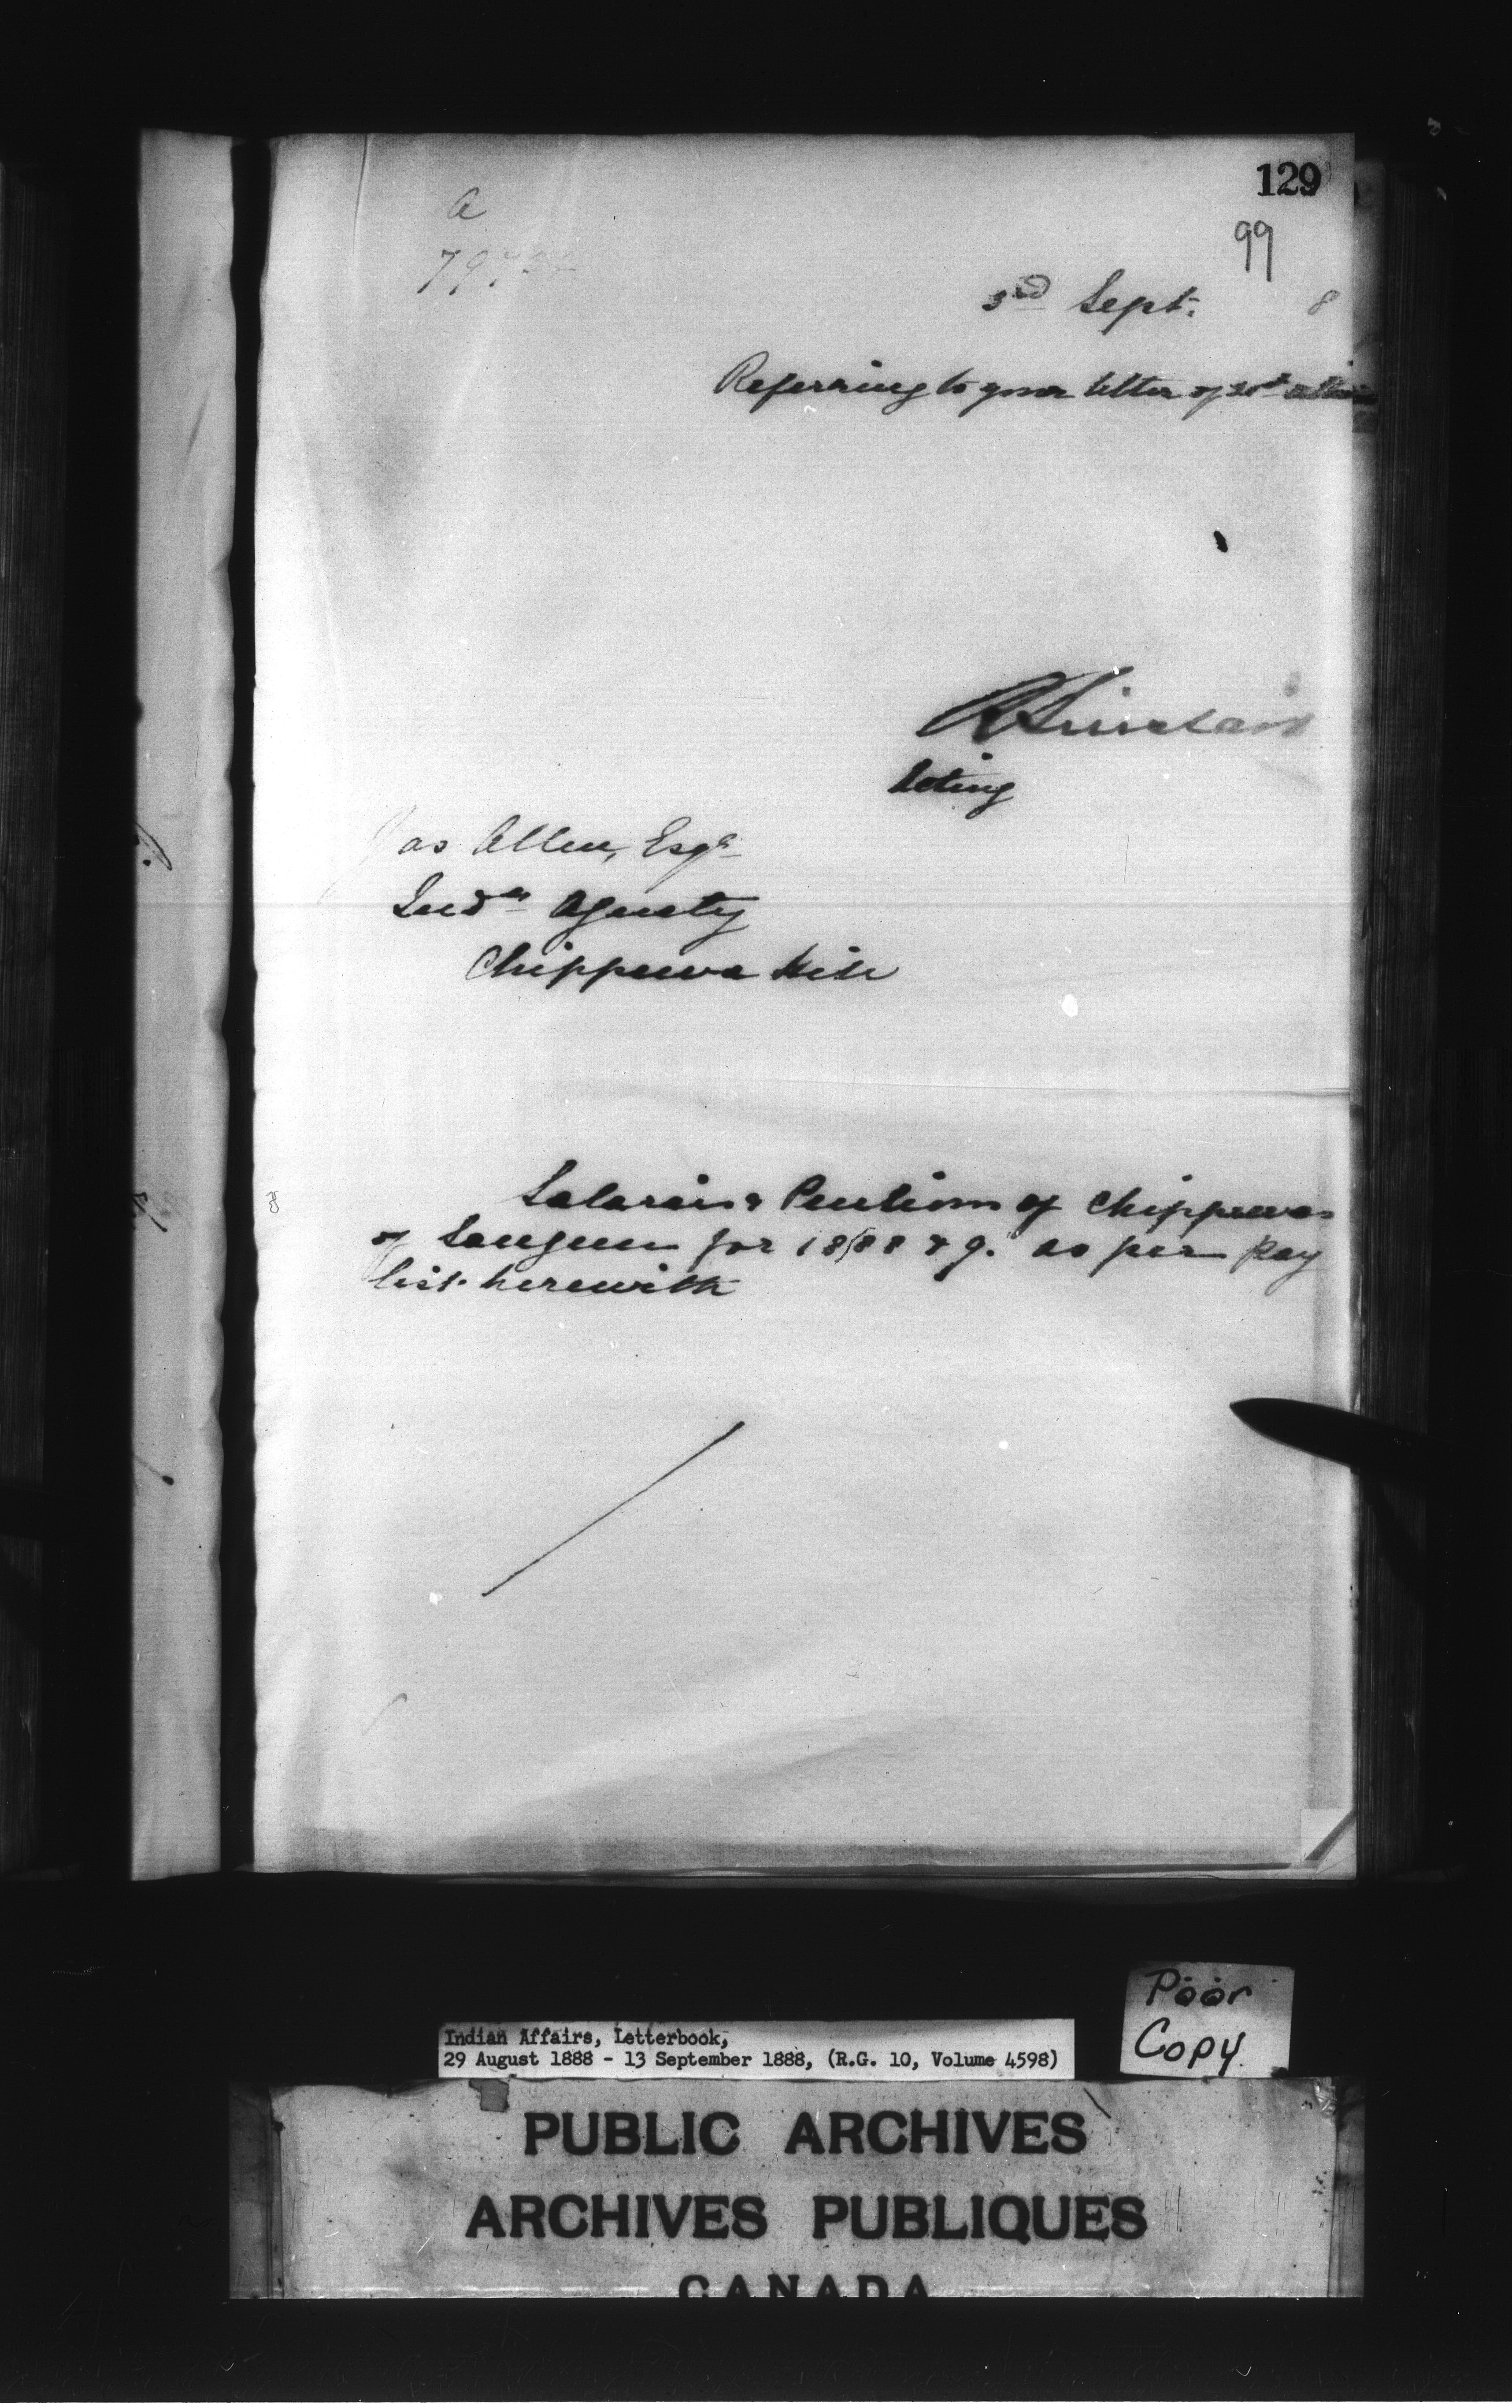 129
99
a
3rd Sept. 8
Referring to your letter of
R Sinclair
Acting
Jas Allen, Esqr
Indn Agency
Chippewa Hill
Salaries & Pensions of Chippewas
of Saugeen for 1888 & 9. as per Pay
list herewith
Poor
Copy.
Indian Affairs, Letterbook,
29 August 1888 - 13 September 1888, (R.G. 10, Volume 4598)
PUBLIC ARCHIVES
ARCHIVES PUBLIQUES
CANADA